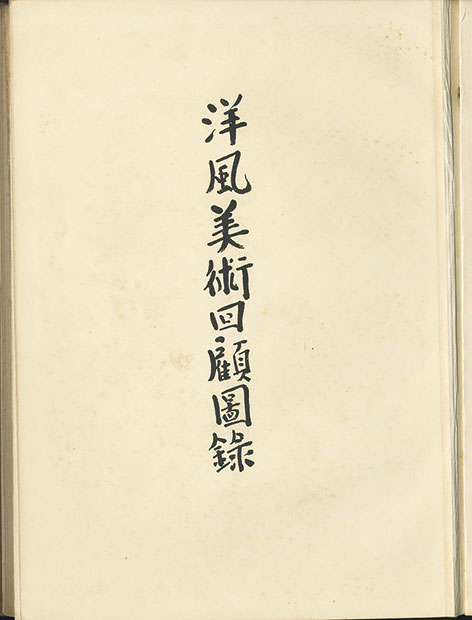 洋風美術回顧圖錄